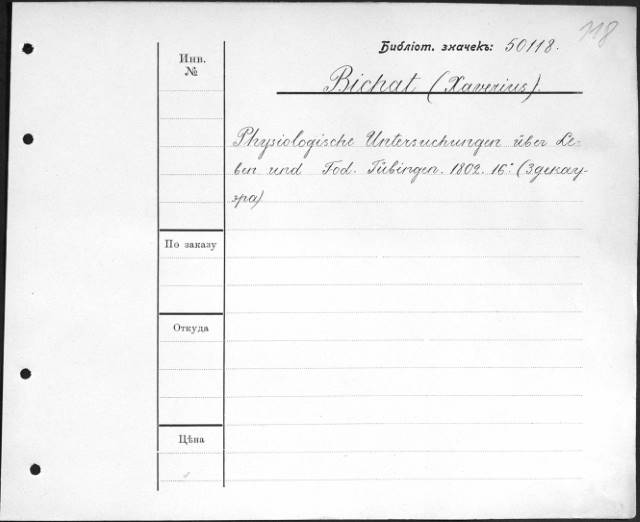 118
Библіот. значекъ: 50118.
Инв.
№
Bichat (Xaverius).
Physiologische Untersuchungen über Le-
ben und Tod. Tübingen. 1802. 16°. (3 декау-
эра)
По заказу
Откуда
Цѣна